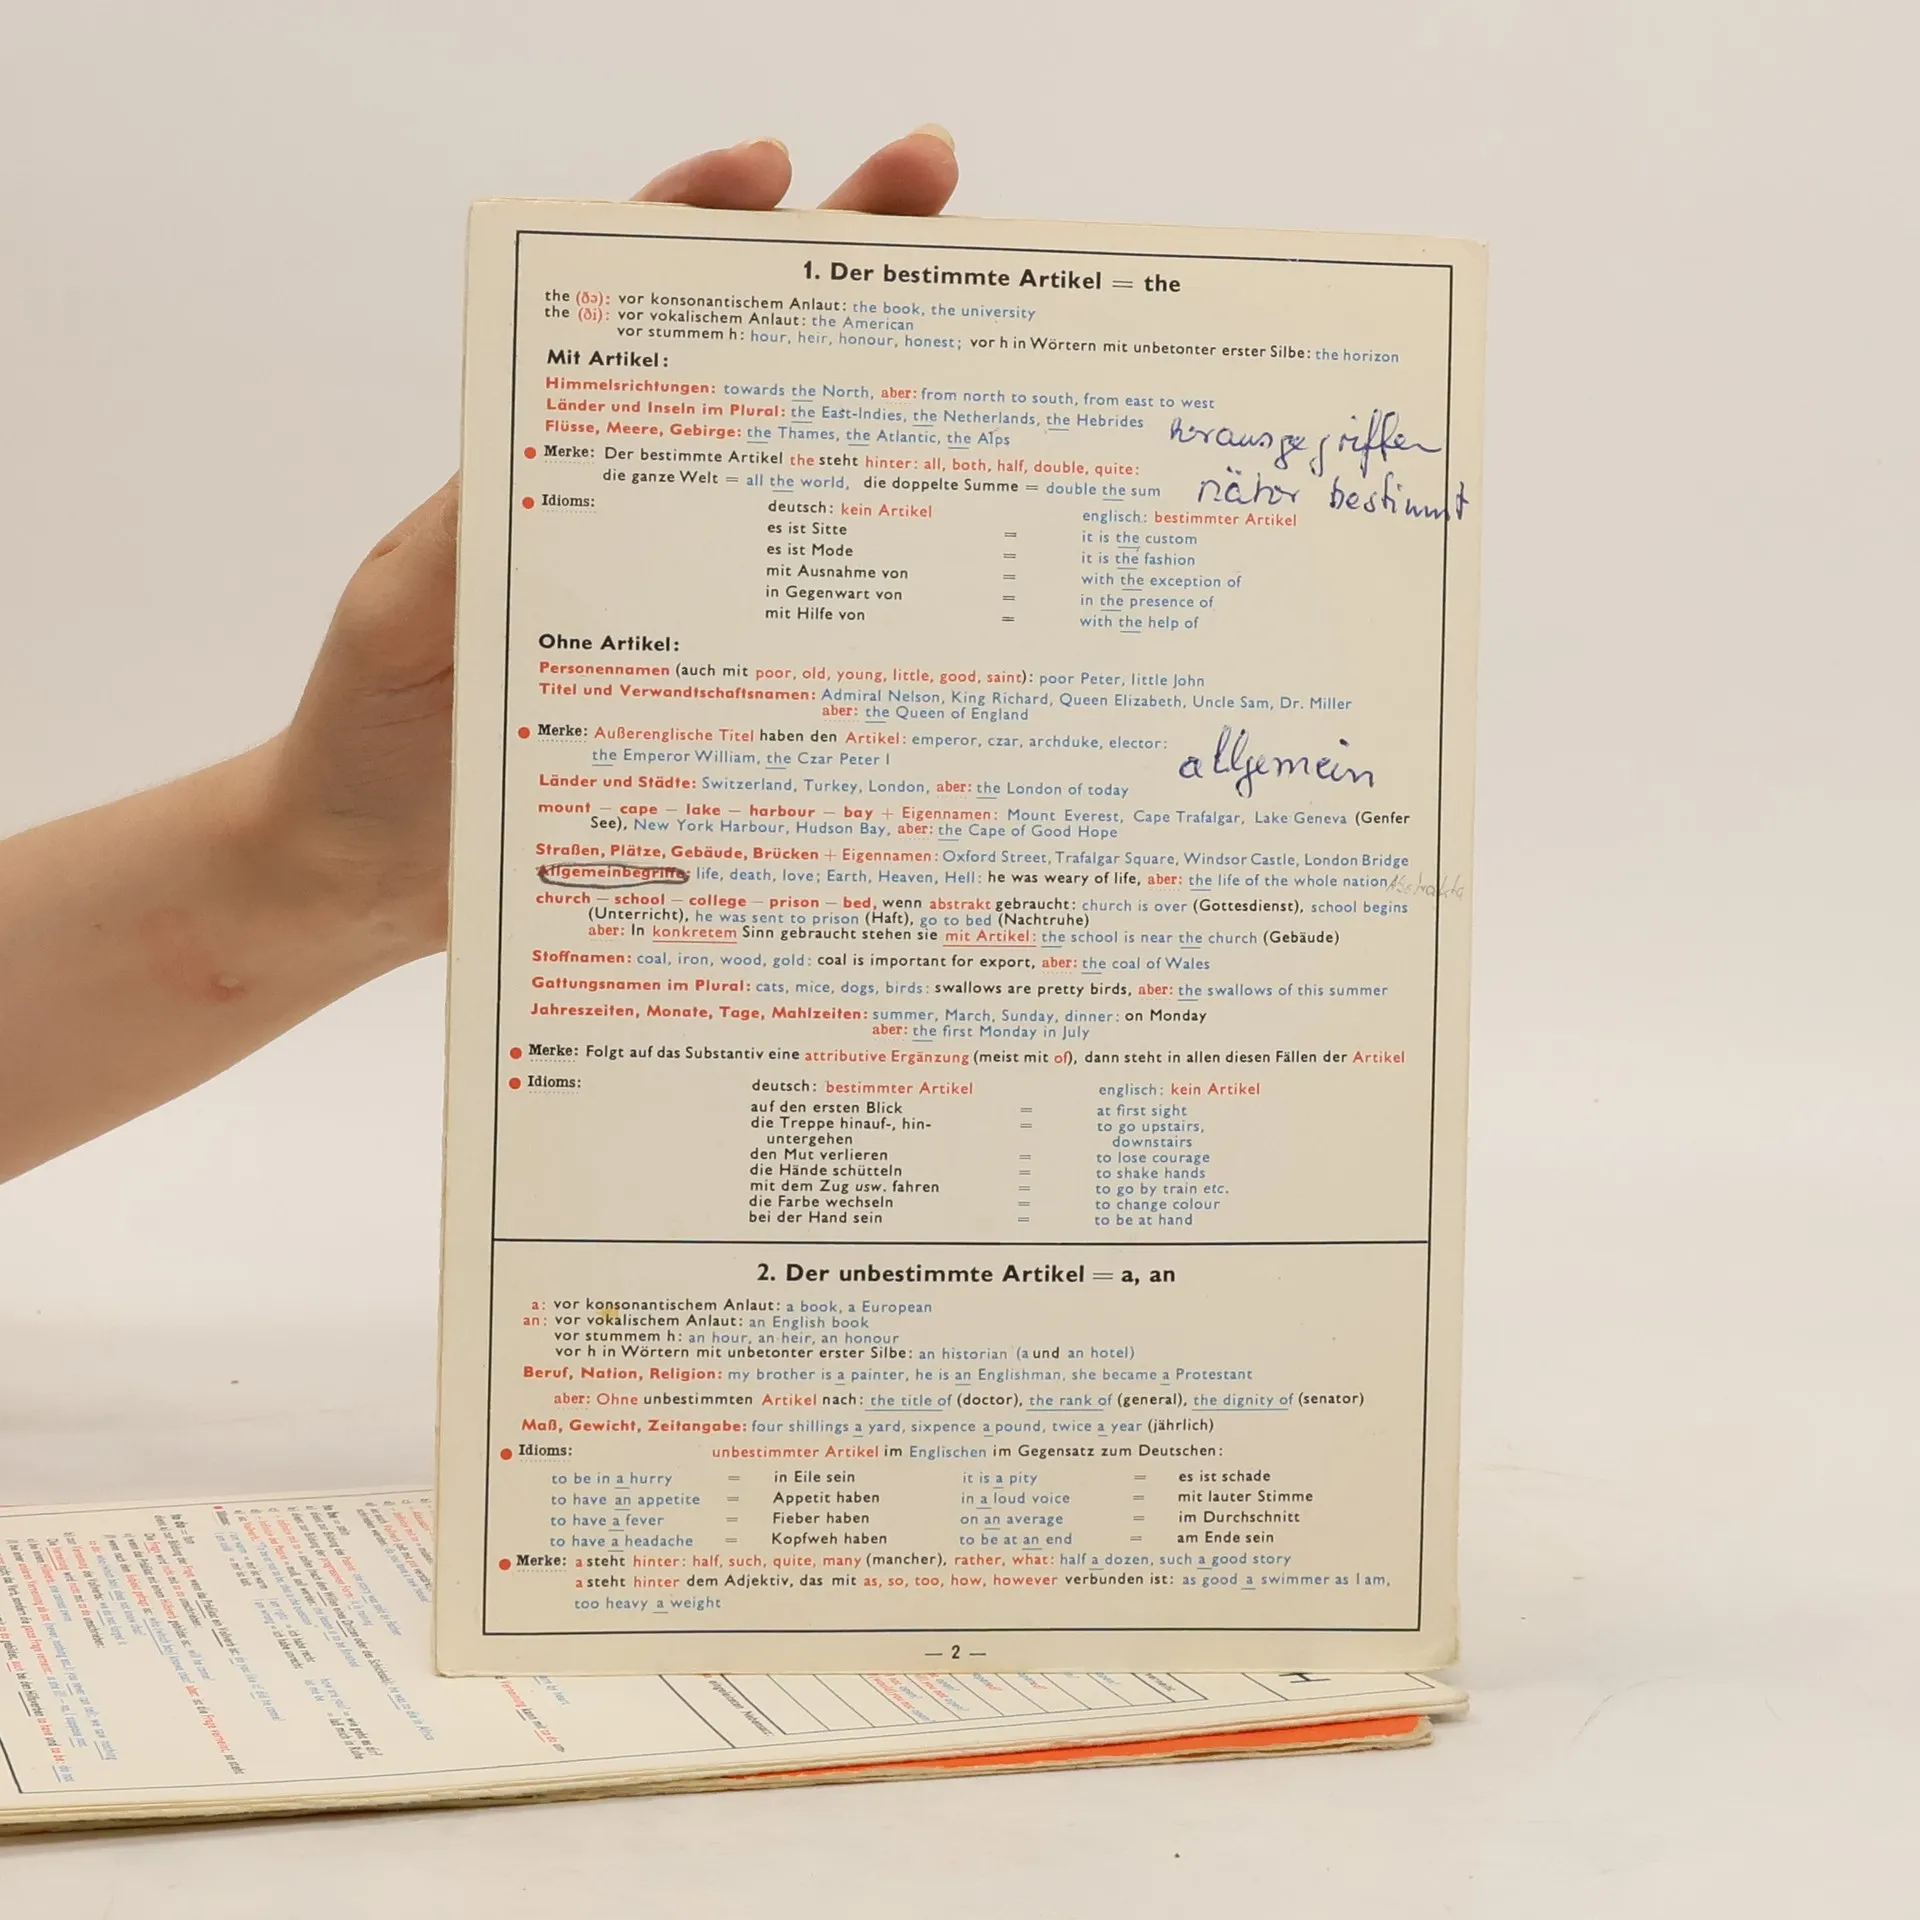 1. Der bestimmte Artikel = the
the (ðə): vor konsonantischem Anlaut: the book, the university
the (ði): vor vokalischem Anlaut: the American
vor stummem h: hour, heir, honour, honest; vor h in Wörtern mit unbetonter erster Silbe: the horizon
Mit Artikel:
Himmelsrichtungen: towards the North, aber: from north to south, from east to west
Länder und Inseln im Plural: the East-Indies, the Netherlands, the Hebrides
Flüsse, Meere, Gebirge: the Thames, the Atlantic, the Alps
herausgegriffen
Merke: Der bestimmte Artikel the steht hinter: all, both, half, double, quite:
die ganze Welt = all the world, die doppelte Summe = double the sum
näher bestimmt
Idioms:
deutsch: kein Artikel englisch: bestimmter Artikel
es ist Sitte = it is the custom
es ist Mode = it is the fashion
mit Ausnahme von = with the exception of
in Gegenwart von = in the presence of
mit Hilfe von = with the help of
Ohne Artikel:
Personennamen (auch mit poor, old, young, little, good, saint): poor Peter, little John
Titel und Verwandtschaftsnamen: Admiral Nelson, King Richard, Queen Elizabeth, Uncle Sam, Dr. Miller
aber: the Queen of England
Merke: Außerenglische Titel haben den Artikel: emperor, czar, archduke, elector:
the Emperor William, the Czar Peter I
allgemein
Länder und Städte: Switzerland, Turkey, London, aber: the London of today
mount – cape – lake – harbour – bay + Eigennamen: Mount Everest, Cape Trafalgar, Lake Geneva (Genfer
See), New York Harbour, Hudson Bay, aber: the Cape of Good Hope
Straßen, Plätze, Gebäude, Brücken + Eigennamen: Oxford Street, Trafalgar Square, Windsor Castle, London Bridge
Allgemeinbegriffe: life, death, love; Earth, Heaven, Hell: he was weary of life, aber: the life of the whole nation Abstrakta
church – school – college – prison – bed, wenn abstrakt gebraucht: church is over (Gottesdienst), school begins
(Unterricht), he was sent to prison (Haft), go to bed (Nachtruhe)
aber: In konkretem Sinn gebraucht stehen sie mit Artikel: the school is near the church (Gebäude)
Stoffnamen: coal, iron, wood, gold: coal is important for export, aber: the coal of Wales
Gattungsnamen im Plural: cats, mice, dogs, birds: swallows are pretty birds, aber: the swallows of this summer
Jahreszeiten, Monate, Tage, Mahlzeiten: summer, March, Sunday, dinner: on Monday
aber: the first Monday in July
Merke: Folgt auf das Substantiv eine attributive Ergänzung (meist mit of), dann steht in allen diesen Fällen der Artikel
Idioms:
deutsch: bestimmter Artikel englisch: kein Artikel
auf den ersten Blick = at first sight
die Treppe hinauf-, hin- = to go upstairs,
untergehen downstairs
den Mut verlieren = to lose courage
die Hände schütteln = to shake hands
mit dem Zug usw. fahren = to go by train etc.
die Farbe wechseln = to change colour
bei der Hand sein = to be at hand
2. Der unbestimmte Artikel = a, an
a: vor konsonantischem Anlaut: a book, a European
an: vor vokalischem Anlaut: an English book
vor stummem h: an hour, an heir, an honour
vor h in Wörtern mit unbetonter erster Silbe: an historian (a und an hotel)
Beruf, Nation, Religion: my brother is a painter, he is an Englishman, she became a Protestant
aber: Ohne unbestimmten Artikel nach: the title of (doctor), the rank of (general), the dignity of (senator)
Maß, Gewicht, Zeitangabe: four shillings a yard, sixpence a pound, twice a year (jährlich)
Idioms: unbestimmter Artikel im Englischen im Gegensatz zum Deutschen:
to be in a hurry = in Eile sein it is a pity = es ist schade
to have an appetite = Appetit haben in a loud voice = mit lauter Stimme
to have a fever = Fieber haben on an average = im Durchschnitt
to have a headache = Kopfweh haben to be at an end = am Ende sein
Merke: a steht hinter: half, such, quite, many (mancher), rather, what: half a dozen, such a good story
a steht hinter dem Adjektiv, das mit as, so, too, how, however verbunden ist: as good a swimmer as I am,
too heavy a weight
— 2 —